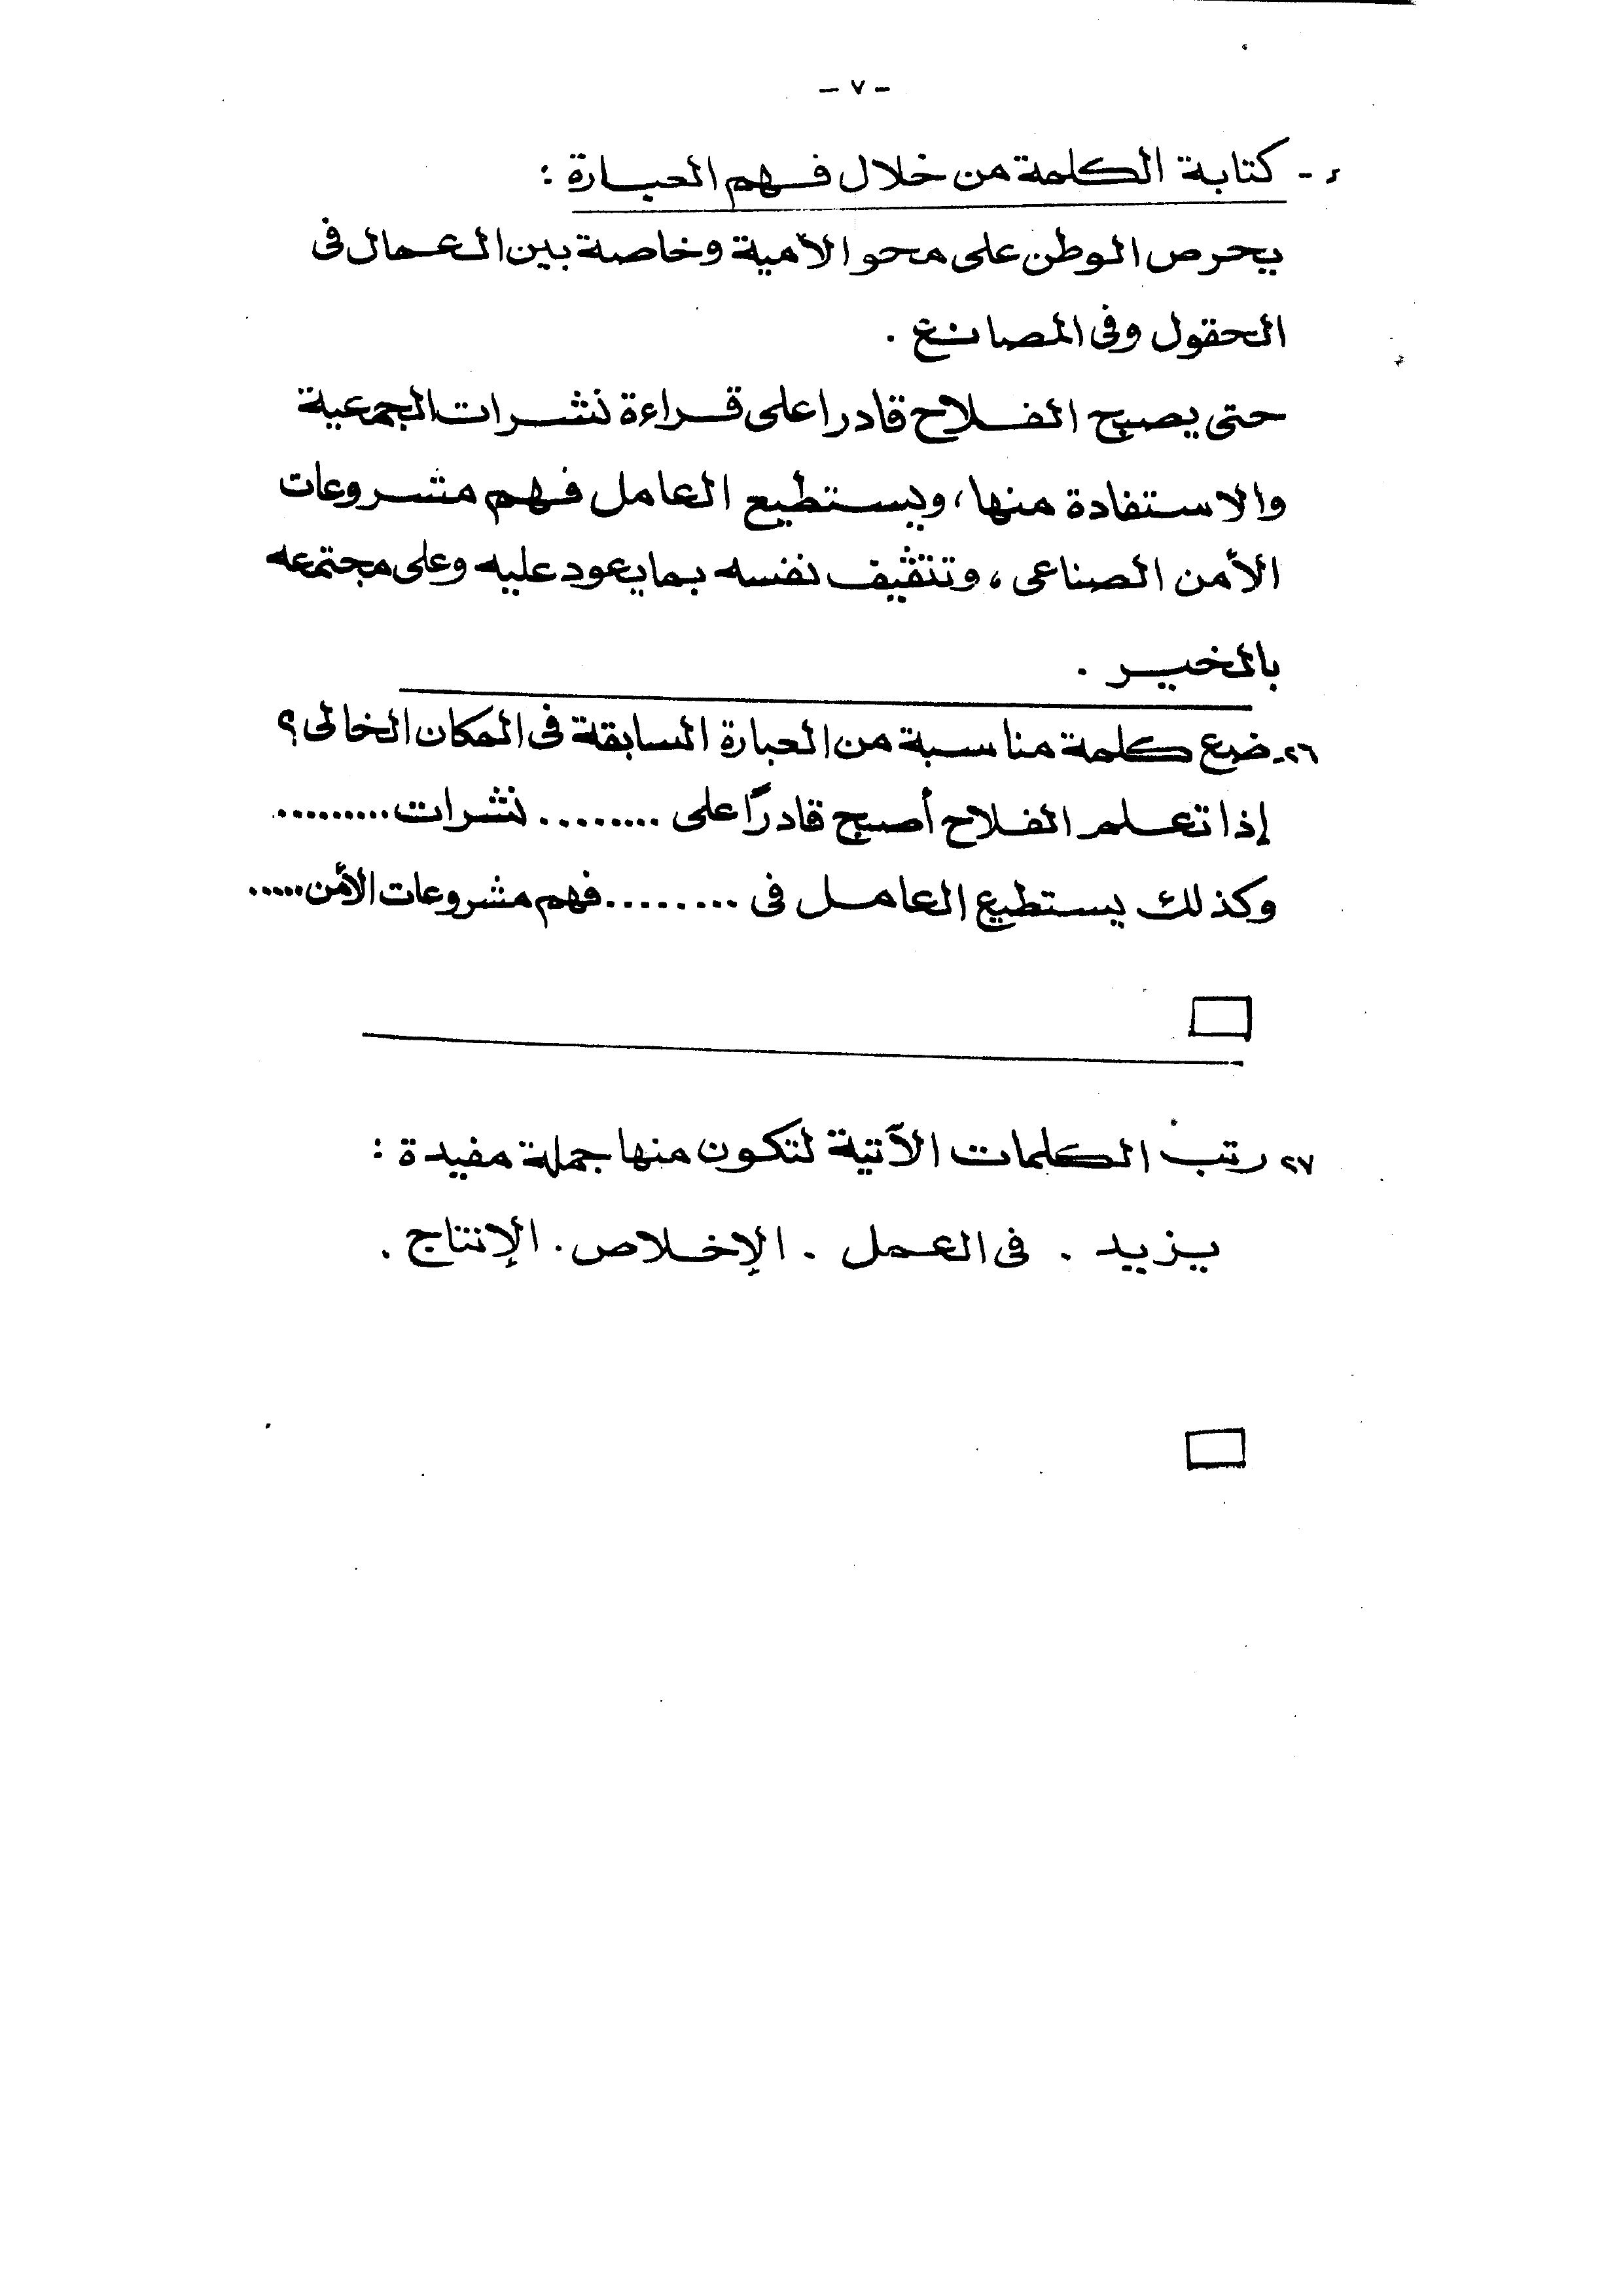 - ٧ -
ء - كتابة الكلمة من خلال فهم العبارة :
يحرص الوطن على محو الأمية وخاصة بين العمال فى
الحقول وفى المصانع .
حتى يصبح الفلاح قادرا على قراءة نشرات الجمعية
والاستفادة منها، ويستطيع العامل فهم مشروعات
الأمن الصناعى، وتثقيف نفسه بما يعود عليه وعلى مجتمعه
بالخير .
٢٦- ضع كلمة مناسبة من العبارة السابقة فى المكان الخالى؟
إذا تعلم الفلاح أصبح قادرًا على ........ نشرات .........
وكذلك يستطيع العامل فى ........ فهم مشروعات الأمن .....
٢٧ رتب الكلمات الآتية لتكون منها جملة مفيدة :
يزيد . فى العمل . الإخلاص . الإنتاج .